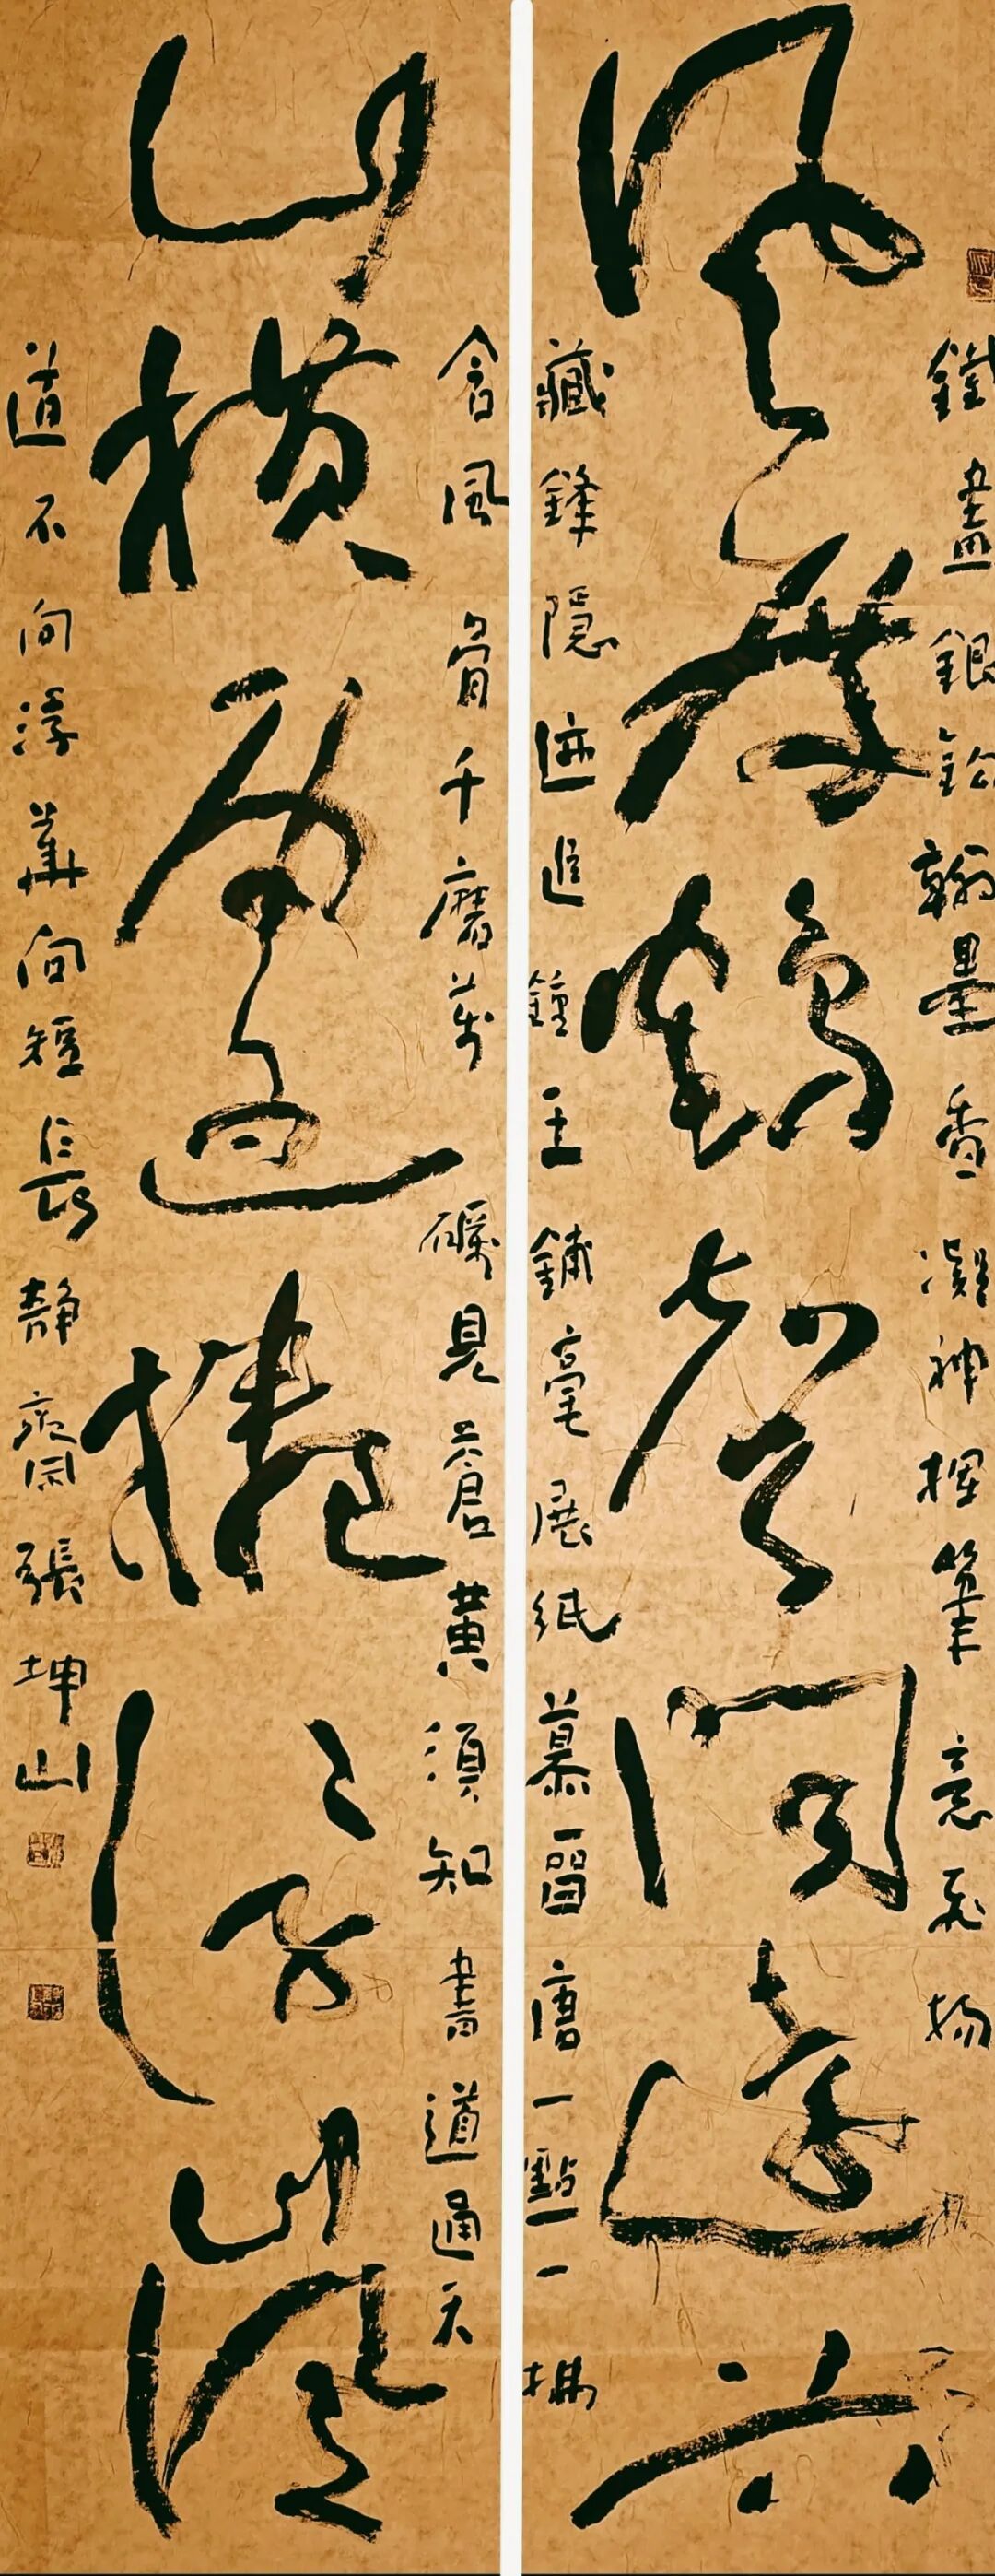 鐵畫銀鉤翰墨香凝神揮筆意飛揚
風度鶴聲聞遠谷
藏鋒隱迹追鍾王鋪毫展紙慕晉唐一點一拂
含風骨千磨萬礪見蒼黃須知書道通天
山橫雨色捲浮嵐
道不向浮華向短長靜齋張坤山